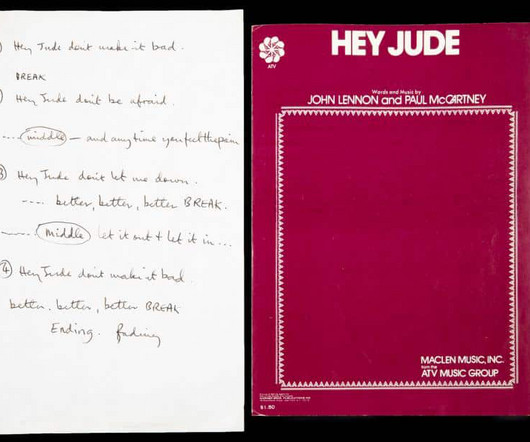 Hey Jude don't make it bad.
BREAK
Hey Jude don't be afraid.
.... middle — and anytime you feel the pain
3 Hey Jude don't let me down.
.... better, better, better BREAK.
middle let it out & let it in ...
4 Hey Jude don't make it bad
better, better, better BREAK
Ending. fading
ATV
HEY JUDE
Words and Music by
JOHN LENNON and PAUL McCARTNEY
MACLEN MUSIC, INC.
from the
ATV MUSIC GROUP
$1.50